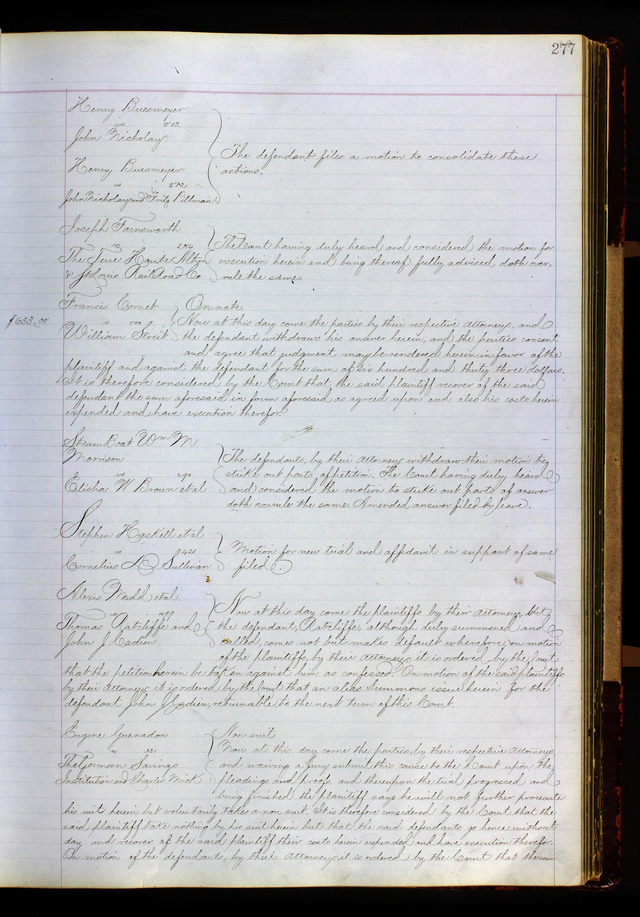 277
Henry Buesmeyer
vs 513
John Nicholay
Henry Buesmeyer
vs 572
John Nicholay and Fritz Pillman
The defendant files a motion to consolidate these
actions.
Joseph Farnsworth
vs
The Terre Haute Alton
& St Louis Rail Road Co
The Court having duly heard and considered the motion for
execution herein and being thereof fully advised doth over-
rule the same.
Francis Cornet
vs
William Streit
$633.00
Now at this day come the parties by their respective Attorneys, and
the defendant withdraws his answer herein, and the parties consent
and agree that judgment may be rendered herein in favor of the
plaintiff and against the defendant for the sum of six hundred and thirty three dollars.
It is therefore considered by the Court that the said plaintiff recover of the said
defendant the sum aforesaid in form aforesaid as agreed upon and also his costs herein
expended and have execution therefor.
Steam Boat Wm M
Morrison
vs 290
Elisha W Brown et al
The defendants, by their Attorney withdraw their motion to
strike out parts of petition. The Court having duly heard
and considered the motion to strike out parts of answer
doth overrule the same. Amended answer filed by leave.
Stephen Haskell et al
vs 342
Cornelius Sullivan
Motion for new trial and affidavit in support of same
filed.
et al
vs 499
Thomas Ratcliffe and
John J
Now at this day come the plaintiffs by their Attorney, but
the defendant, Ratcliffe, although duly summoned and
called, comes not but makes default wherefore, on motion
of the plaintiffs, by their Attorneys it is ordered by the Court
that the petition herein be taken against him as confessed. On motion of the said plaintiffs
by their Attorney it is ordered by the Court that an alias summons issue herein for the
defendant John J returnable to the next term of this Court.
Eugene Guenadon
vs
The German Savings
Institution and Charles Wick
Non suit
Now at this day come the parties, by their respective Attorneys
and waiving a jury submit this cause to the Court upon the
pleadings and proof and thereupon the trial progressed and
being finished the plaintiff says he will not further prosecute
his suit herein but voluntarily takes a non suit. It is therefore considered by the Court that the
said plaintiff take nothing by his suit herein but that the said defendants go hence without
day and recover of the said plaintiff their costs herein expended and have execution therefor.
On motion of the defendants, by their Attorney it is ordered by the Court that the